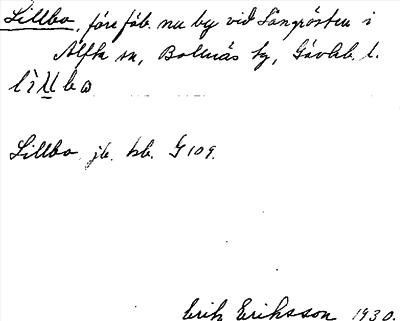 Lillbo, före fäb. nu by vid Långrösten i
Alfta sn, Bollnäs tg, Gävleb. l.
lìllbω
Lillbo jb. kb. G 109.
Erik Eriksson 1930.